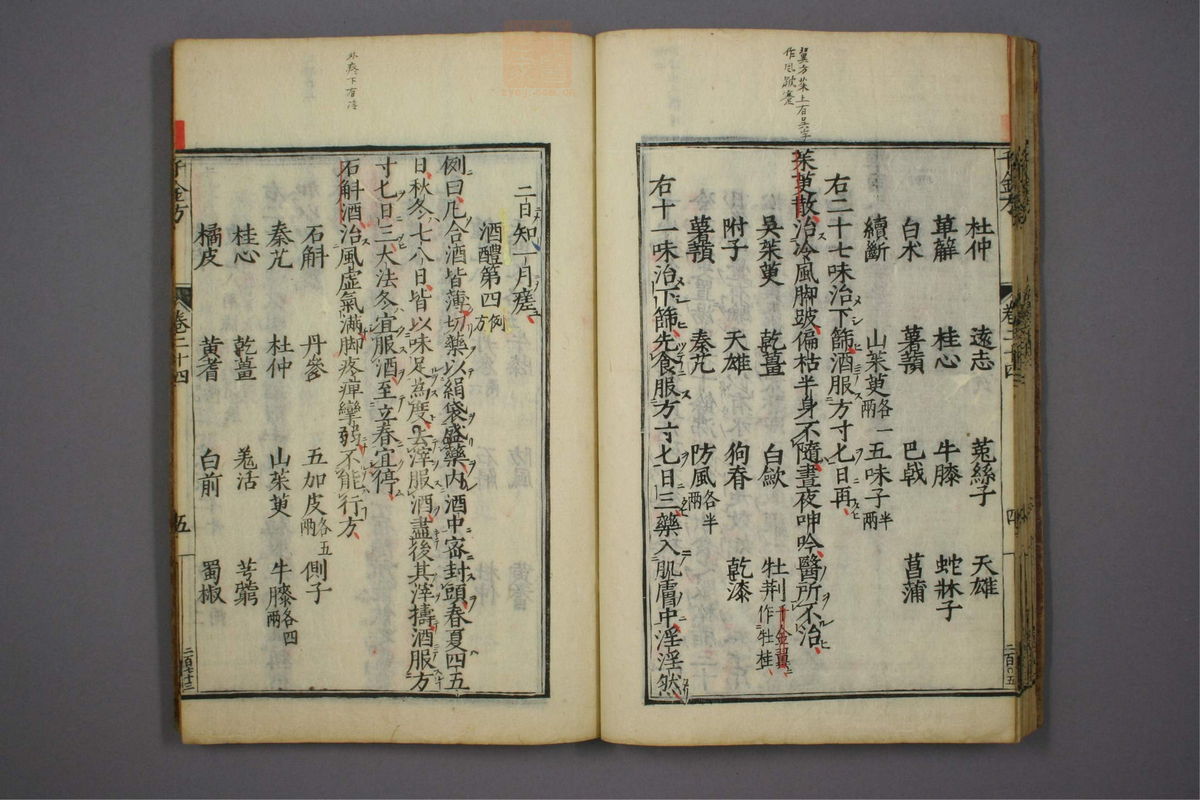 翼方茱上有吳字
作風跛蹇
杜仲 遠志 菟絲子 天雄
萆解 桂心 牛膝 蛇牀子
白朮 薯蕷 巴戟 菖蒲
續斷 山茱萸各一兩 五味子半兩
右二十七味治下篩酒服方寸七日再
茱萸散治冷風脚跛偏枯半身不隨晝夜呻吟醫所不治
吳茱萸 乾薑 白歛 牡荆千金翼作牡桂
附子 天雄 狗脊 乾漆
薯蕷 秦艽 防風各半兩
右十一味治下篩先食服方寸七日三藥入肌膚中淫淫然
千金方 卷二十四 四
二日知一月瘥
酒醴第四例方
例曰凡合酒皆薄切藥以絹袋盛藥內酒中密封頭春夏四五
日秋冬七八日皆以味足爲度去滓服酒盡後其滓擣酒服方
寸七日三大法冬宜服酒至立春宜停
石斛酒治風虛氣滿脚疼痺攣弱不能行方
石斛 丹參 五加皮各五兩 側子
秦艽 杜仲 山茱萸 牛膝各四兩
桂心 乾薑 羌活 芎藭
橘皮 黃耆 白前 蜀椒
千金方 卷二十四 五